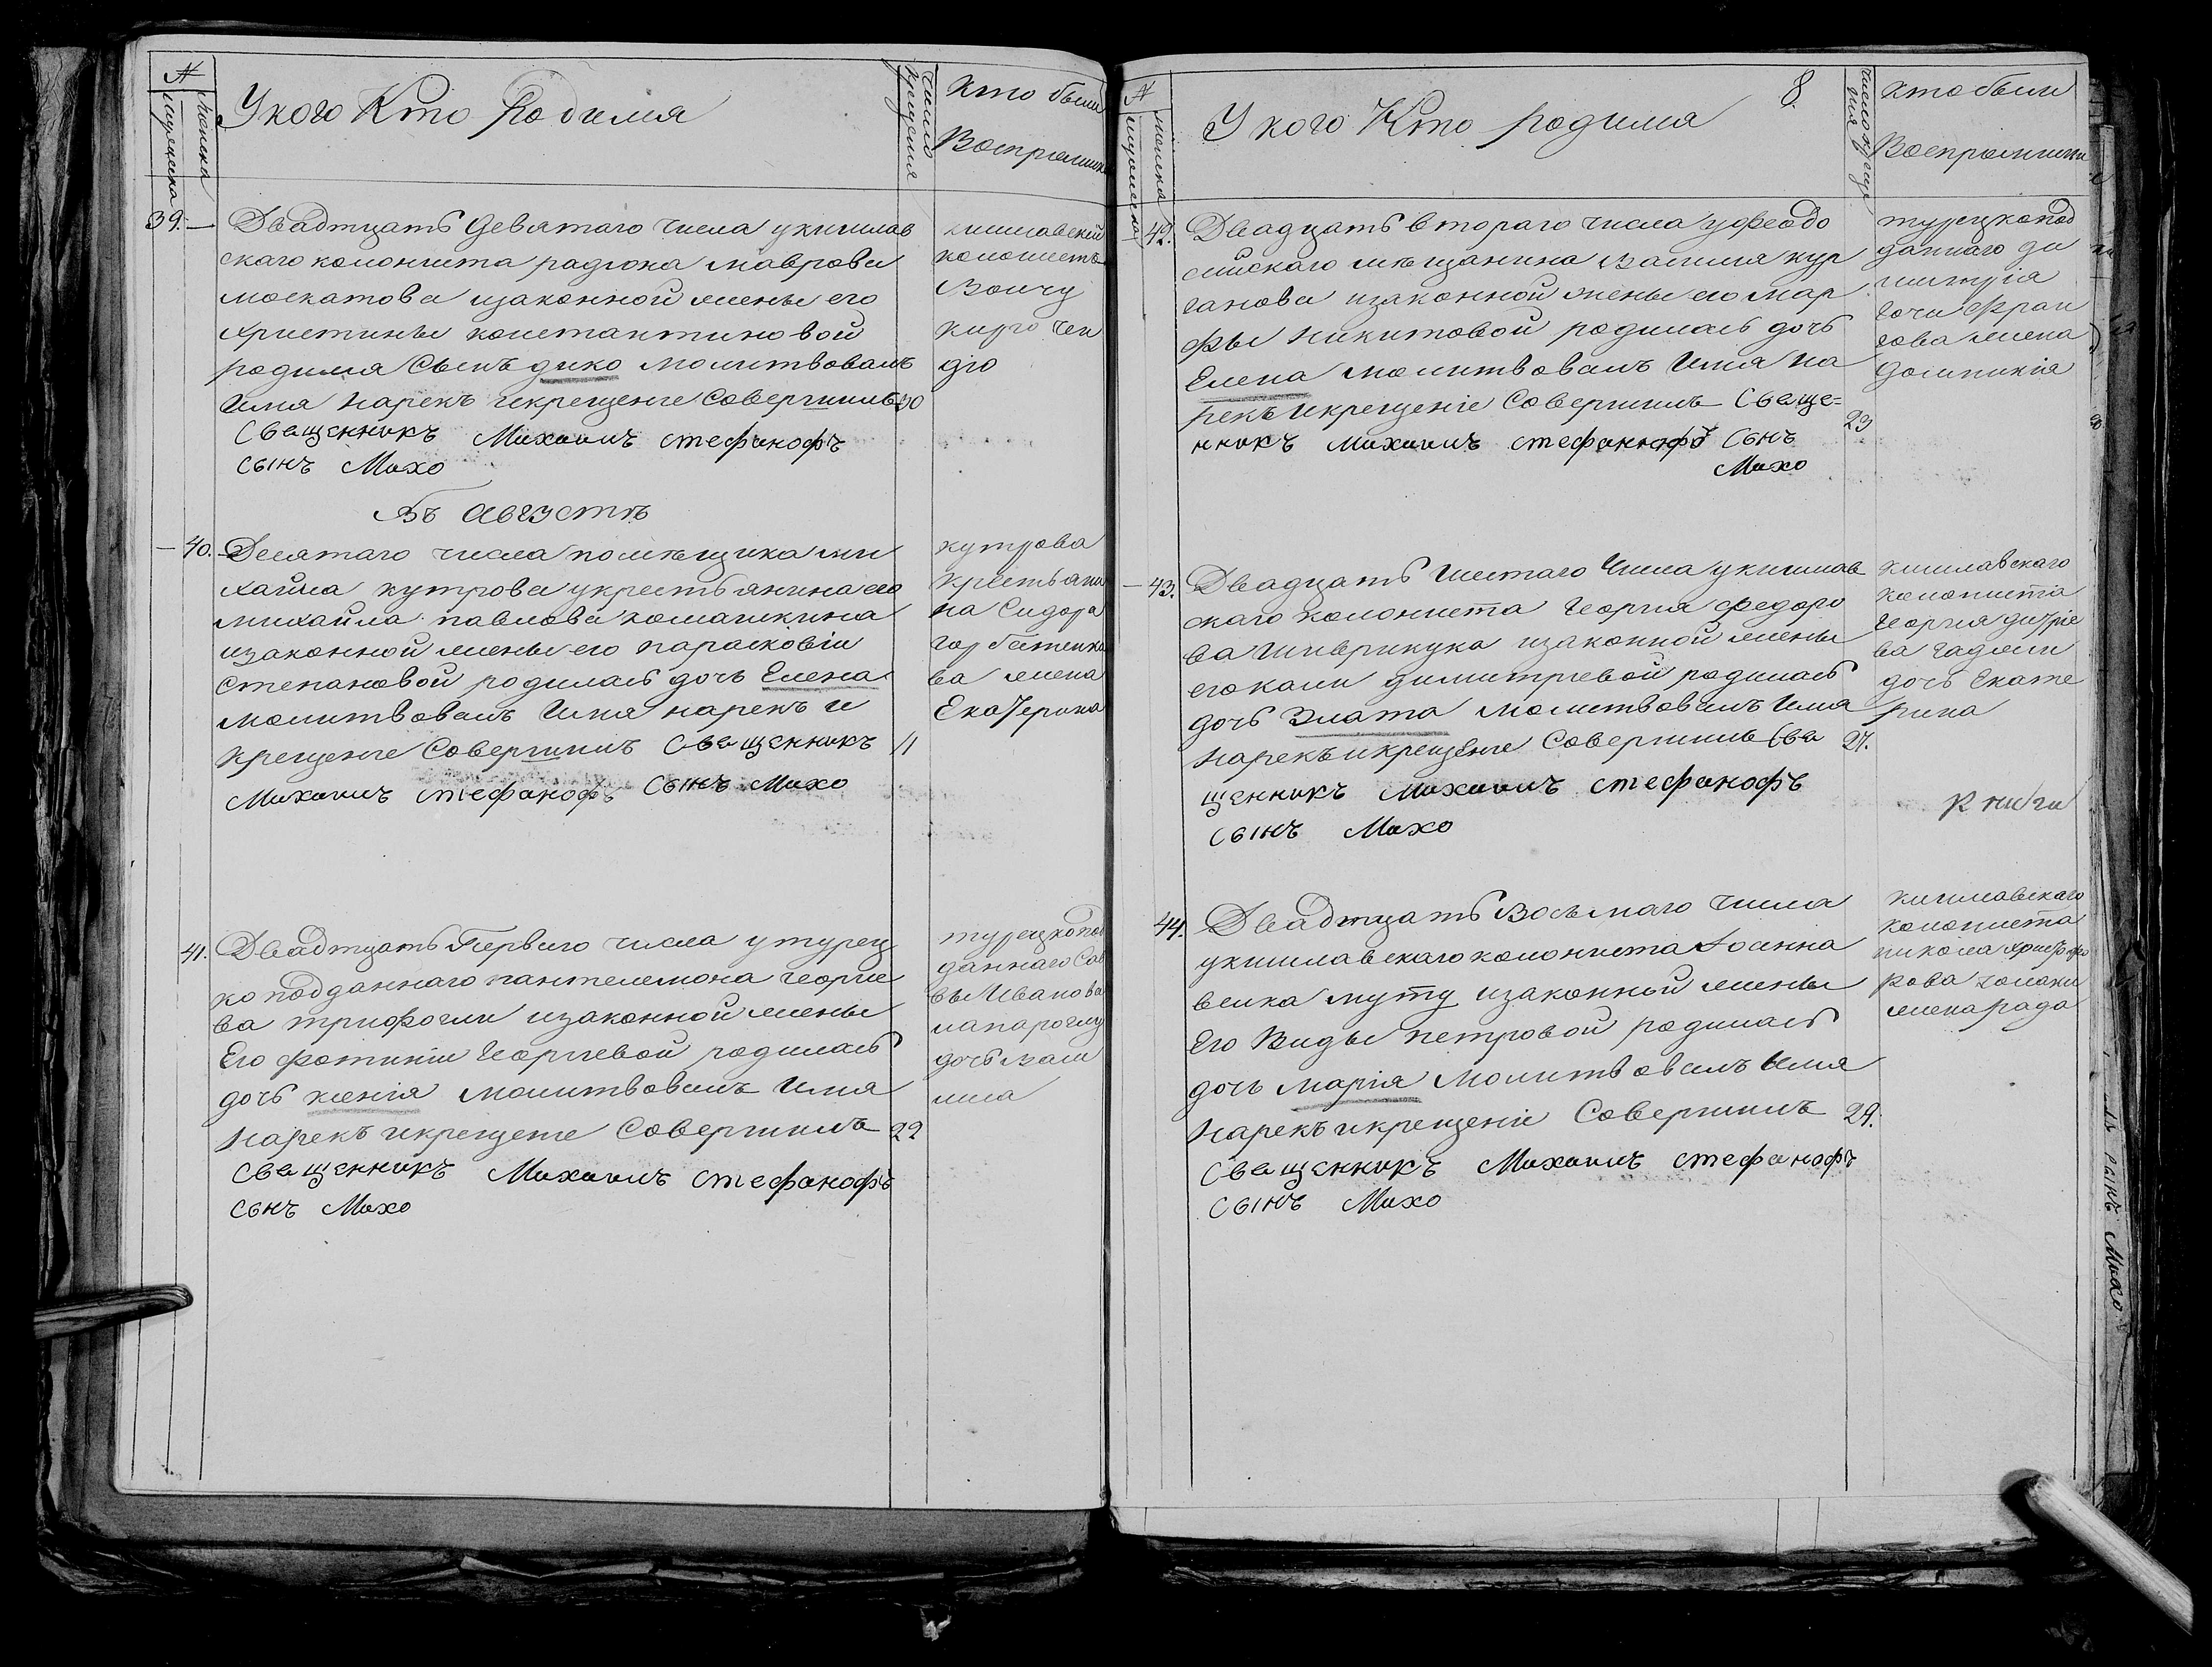 №
мужеска
женска
У кого Кто Родился
число
крещения
Кто были
Восприемник
39.
Двадтцать Девятаго числа укишлав
скаго колониста радиона маврова
москатова изаконной жены его
христины константиновой
родился сынъ дико молитвовалъ
имя нарекъ икрещение совершилъ 30
Священникъ Михаилъ стефанофъ
сынъ Михо
кишлавский
колонистъ
Волчу
киро чен
дю
Въ Августѣ
40.
Десятаго числа помѣщика ми
хайла кутрова укрестьянина его
михайла павлова
изаконной жены его парасковiи
степановой родилась дочь Елена
молитвовалъ имя нарекъ и
крещение Совершилъ Священникъ 11
Михаилъ стефанофъ сынъ Михо
кутрова
крестьяни
на Сидора
горбатенко
ва жена
Екатерина
41.
Двадтцать Перваго числа у турец
ко подданнаго пантелемона георгие
ва трифогли изаконной жены
Его фотинiи Георгиевой родилась
дочь ксенiя молитвовалъ имя
нарекъ икрещение Совершилъ 22
Священникъ Михаилъ стефанофъ
сынъ Михо
турецкопод
даннаго Сав
вы Иванова
дочь Васи
лиса
8.
№
мужеска
женска
У кого Кто родился
число креще
ния
Кто были
Восприемники
42.
Двадцать втораго числа уфеодо
сийскаго мѣщанина василия кур
ганова изаконной жены его мар
фы Никитовой родилась дочь
Елена молитвовалъ Имя на
рекъ икрещенiе Совершилъ Свяще= 23
нникъ Михаилъ стефанофъ Сынъ
Михо
турецкопод
даннаго ди
митрiя
гочи фран
гова жена
домникiя
43.
Двадцать Шестаго Числа укишлав
скаго колониста Георгия федоро
ва изаконной жены
его кали димитриевой родилась
дочь Злата молитвовалъ имя
нарекъ икрещение Совершилъ Свя 27.
щенникъ Михаилъ стефанофъ
сынъ Михо
кишлавскаго
колониста
Георгия
ва
дочь Екате
рина
44.
Двадтцать Восьмаго числа
укишлавскаго колониста Iоанна
велка муту изаконной жены
Его Виды петровой родилась
дочь марiя Молитвовалъ имя
нарекъ икрещенiе Совершилъ 29.
Священникъ Михаилъ стефанофъ
сынъ Михо
кишлавскаго
колониста
никола христофо
рова
жена рада
сынъ Михо